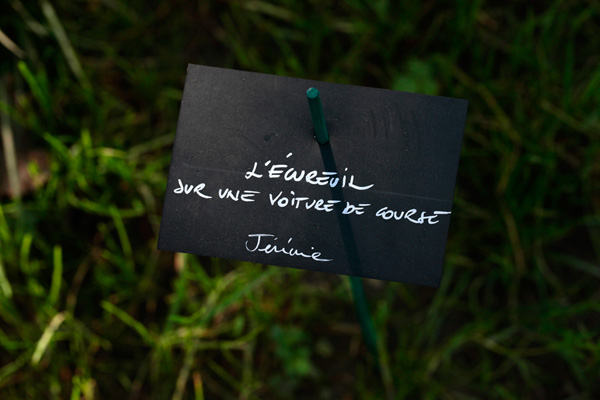 L'ÉCUREUIL
SUR UNE VOITURE DE COURSE
Jérémie